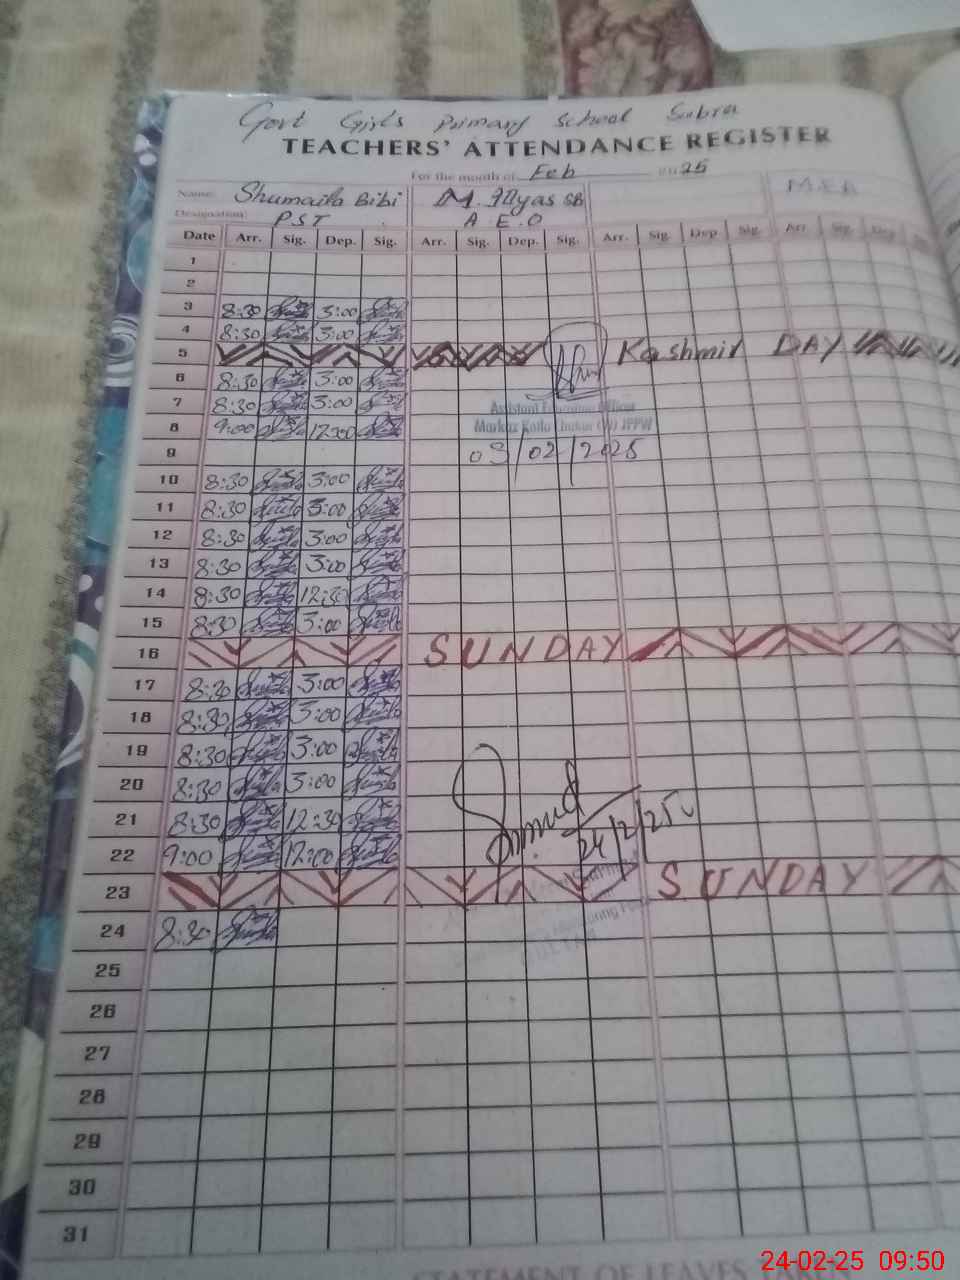 Govt Girls Primary School Subra
TEACHERS' ATTENDANCE REGISTER
For the month of Feb 2025
Name: Shumaila Bibi M. Ilyas SB M.E.A
Designation: PST A.E.O
Date Arr. Sig. Dep. Sig. Arr. Sig. Dep. Sig. Arr. Sig. Dep Sig. Arr. Sig. Dep
1
2
3 8:30 3:00
4 8:30 3:00
5 Kashmir DAY
6 8:30 3:00
7 8:30 3:00
Assistant Education Officer
8 9:00 12:00
Markaz
9 03/02/2025
10 8:30 3:00
11 8:30 3:00
12 8:30 3:00
13 8:30 3:00
14 8:30 12:30
15 8:30 3:00
16 SUNDAY
17 8:30 3:00
18 8:30 3:00
19 8:30 3:00
20 8:30 3:00
21 8:30 12:30
22 9:00 12:00 24/2/25
23 SUNDAY
24 8:30
Monitoring
25
26
27
28
29
30
31
STATEMENT OF LEAVES
24-02-25 09:50